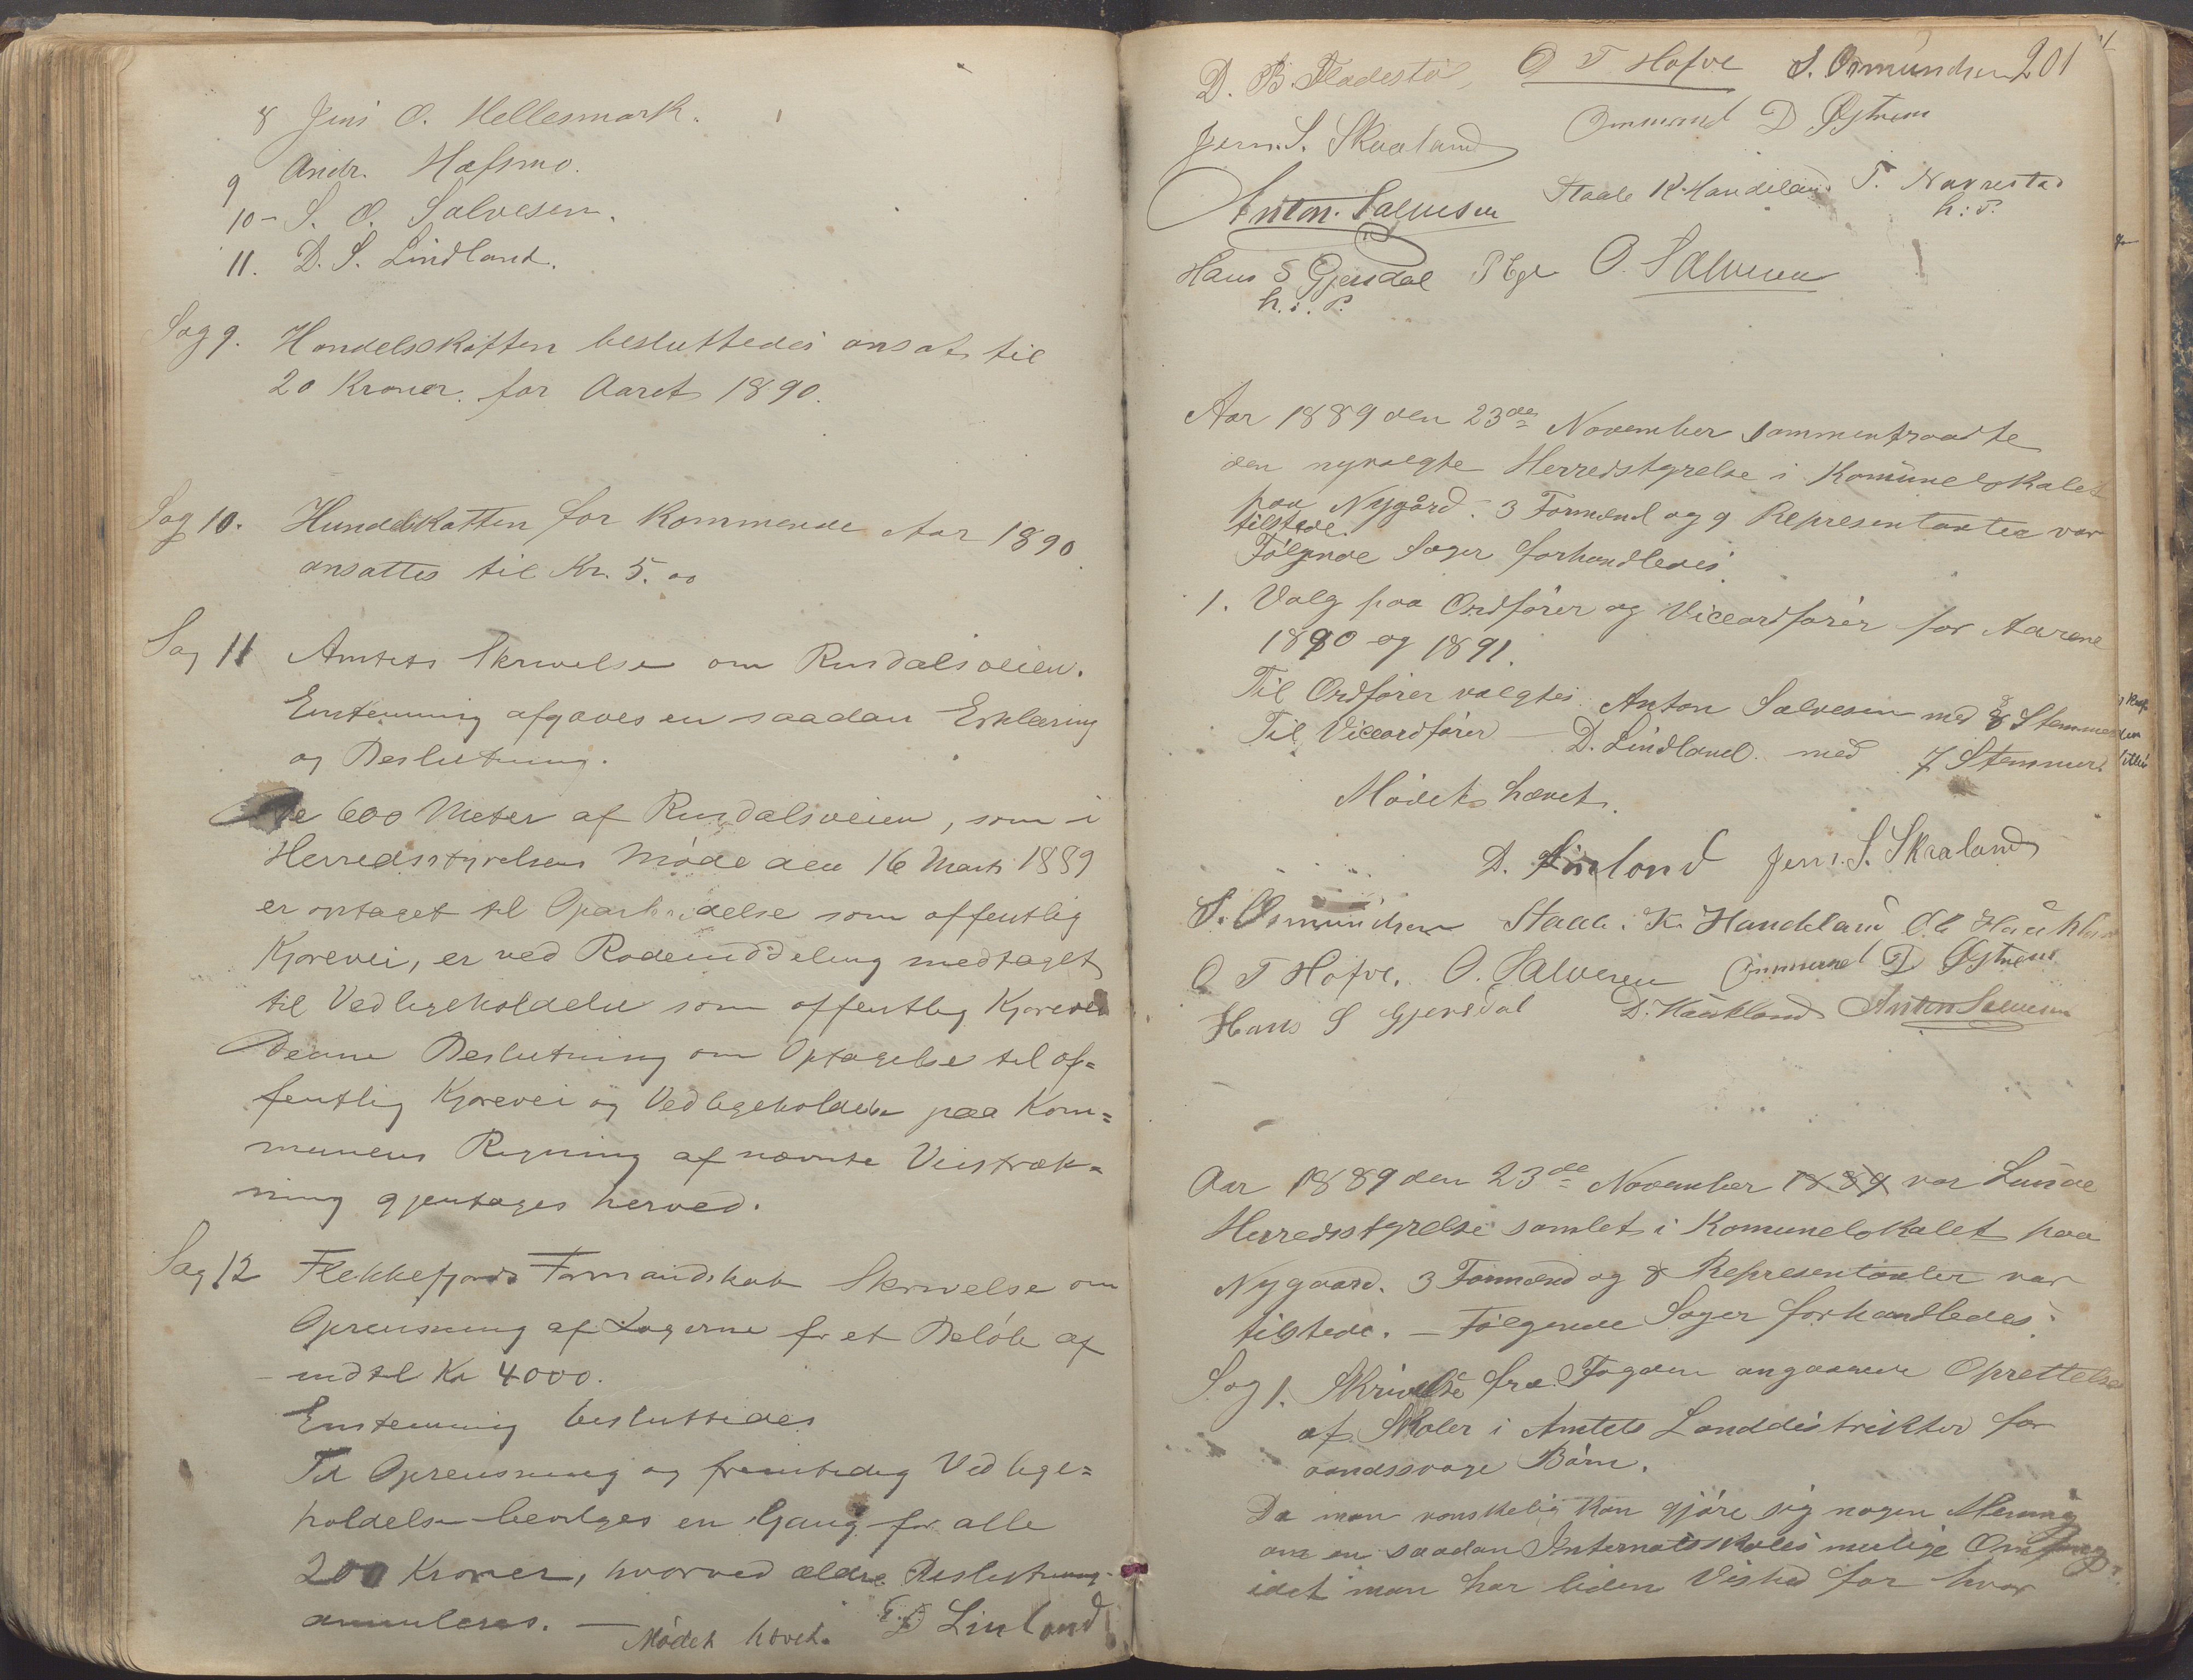 8 Jens O. Hellesmark.
9 Andr. Hafsmo.
10 - S. O. Salvesen.
11. D. S. Lindland.
Sag 9. Handelsskatten besluttedes ansat til
20 Kroner for Aaret 1890.
Sag 10. Hundeskatten for kommende Aar 1890
ansattes til Kr. 5.00
Sag 11 Amtets Skrivelse om Rusdalsveien.
Enstemmig afgaves en saadan Erklæring
og Beslutning.
De 600 Meter af Rusdalsveien, som i
Herredsstyrelsens Møde den 16 Marts 1889
er optaget til Oparbeidelse som offentlig
Kjørevei, er ved Rodeinddeling medtaget
til Vedligeholdelse som offentlig Kjørevei
Denne Beslutning om Optagelse til of=
fentlig Kjørevei og Vedligeholdelse paa Kom=
munens Regning af nævnte Veistræk=
ning gjentages herved.
Sag 12 Flekkefjords Formandskab Skrivelse om
Oprensning af Logerne for et Beløb af
indtil Kr 4000.
Enstemmig besluttedes
Til Oprensning og fremtidig Vedlige=
holdelse bevilges en Gang for alle
200 Kroner, hvorved ældre Beslutning
annuleres. — Mødet hævet. D Linland
201
D. B. Fladestø, O T Hofve S. Osmundsen
Jern. S. Skaaland Ommund D Øgstrem
Anton Salvesen Staale K. Handeland T. Navrestad
h. i. P.
Hans S Gjersdal O. Salvesen
h. i. P.
Aar 1889 den 23de November sammentraadte
den nyvalgte Herredstyrelse i Komunelokalet
paa Nygård. 3 Formænd og 9 Representanter var
tilstede.
Følgende Sager forhandledes.
1. Valg paa Ordfører og Viceordfører for Aarene
1890 og 1891.
Til Ordfører valgtes Anton Salvesen med 8 Stemmer
Til Viceordfører — D. Lindland med 7 Stemmer.
Mødet hævet.
D. Linlond Jern. S. Skaaland
S. Osmundsen Staale. K. Handeland Ole Haukland
O T Hofve. O. Salvesen Ommund D Øgstrem
Hans S Gjersdal D. Haukland Anton Salvesen
Aar 1889 den 23de November 1889 var Lunde
Herredsstyrelse samlet i Komunelokalet paa
Nygaard. 3 Formænd og 8 Representanter var
tilstede. — Følgende Sager forhandledes:
Sag 1. Skrivelse fra Fogden angaaende Oprettelse
af Skoler i Amtets Landdistrikter for
aandssvage Børn.
Da man vanskelig kan gjøre sig nogen Mening
om en saadan Internatsskoles mulige Omfang,
idet man har liden Vished for hvor